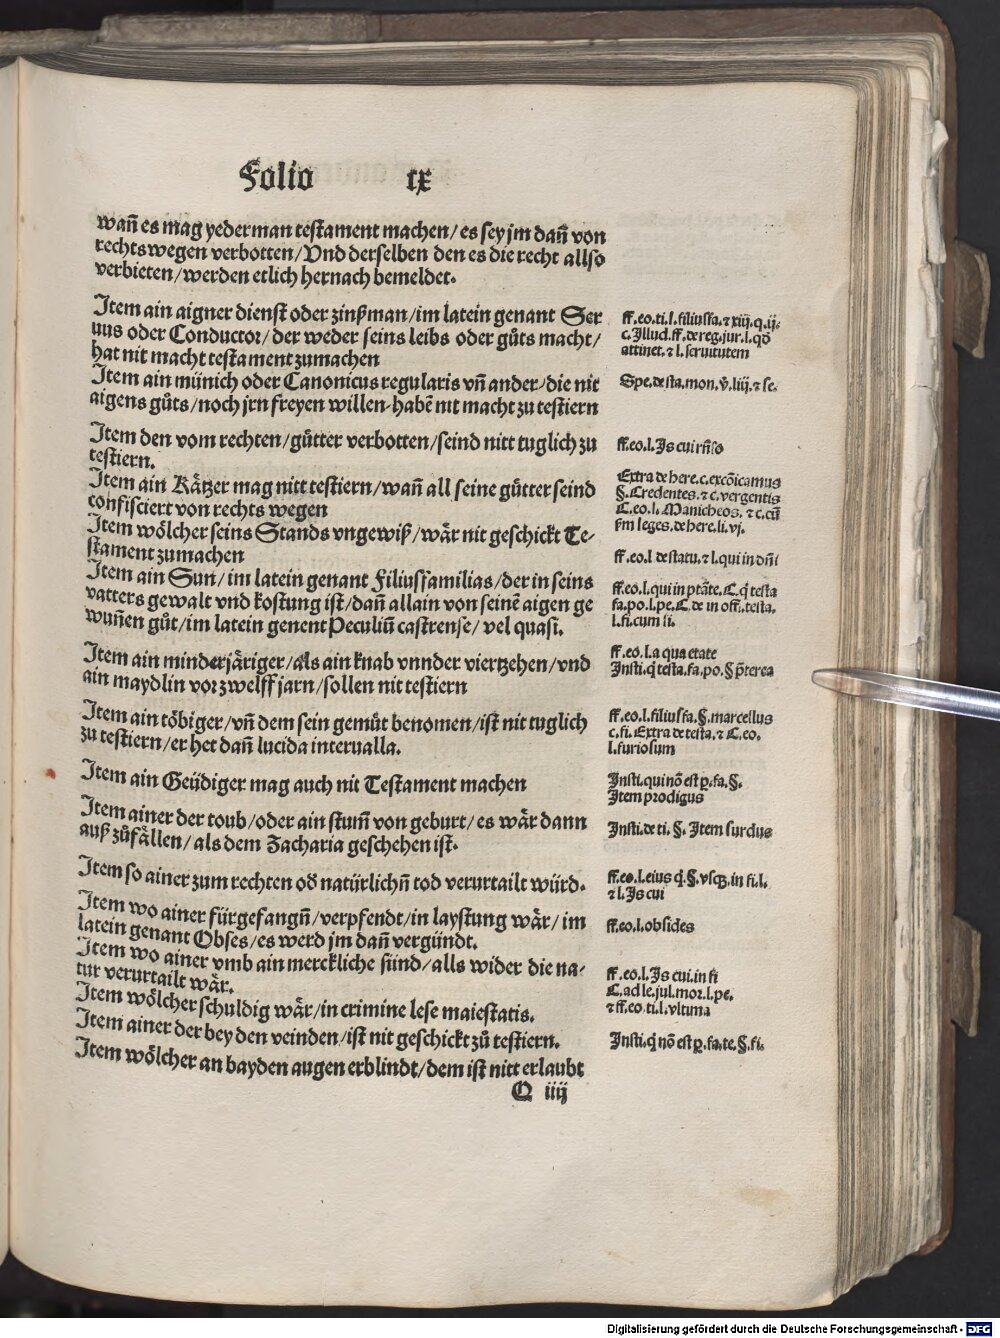 Folio lx
wañ es mag yederman testament machen/ es sey jm dañ von
rechts wegen verbotten/ Vnd derselben den es die recht allso
verbieten/ werden etlich hernach bemeldet.
Item ain aigner dienst oder zinßman/ im latein genant Ser
uus oder Conductor/ der weder seins leibs oder gůts macht/
hat nit macht testament zumachen
Item ain münich oder Canonicus regularis vñ ander/ die nit
aigens gůts/ noch jrn freyen willen habē nit macht zu testiern
Item den vom rechten/ gůtter verbotten/ seind nitt tuglich zu
testiern.
Item ain Kåtzer mag nitt testiern/ wañ all seine gůtter seind
confisciert von rechts wegen
Item wölcher seins Stands vngewiß/ wår nit geschickt Te-
stament zumachen
Item ain Sun/ im latein genant Filiusfamilias/ der in seins
vatters gewalt vnd kostung ist/ dañ allain von seinē aigen ge
wuñen gůt/ im latein genent Peculiū castrense/ vel quasi.
Item ain minderjäriger/ als ain knab vnnder viertzehen/ vnd
ain maydlin vor zwelff jarn/ sollen nit testiern
Item ain töbiger/ vñ dem sein gemůt benomen/ ist nit tuglich
zu testiern/ er het dañ lucida interualla.
Item ain Geüdiger mag auch nit Testament machen
Item ainer der toub/ oder ain stum̄ von geburt/ es wår dann
auß zůfållen/ als dem Zacharia geschehen ist.
Item so ainer zum rechten oď natürlichñ tod verurtailt würd.
Item wo ainer fürgefangñ/ verpfendt/ in laystung wår/ im
latein genant Obses/ es werd jm dañ vergündt.
Item wo ainer vmb ain merckliche sünd/ alls wider die na-
tur verurtailt wår.
Item wölcher schuldig wår/ in crimine lese maiestatis.
Item ainer der bey den veinden/ ist nit geschickt zů testiern.
Item wölcher an bayden augen erblindt/ dem ist nitt erlaubt
Q iiij
ff. eo. ti. l. filiusfa. ⁊ xiij. q. ij.
c. Illud. ff. de reg. jur. l. qď
attinet. ⁊ l. seruitutem
Spe. de sta. mon. ṽ. liij. ⁊ se.
ff. eo. l. Is cui
Extra de here. c. excōicamus
§. Credentes. ⁊ c. vergentis
C. eo. l. Manicheos. ⁊ c. cū
ẜm leges. de here. li. vj.
ff. eo. l de statu. ⁊ l. qui in
ff. eo. l. qui in ptāte. C. q̇ testa
fa. po. l. pe. C. de in off. testa.
l. fi. cum li.
ff. eo. l. a qua etate
Insti. q̇ testa. fa. po. § p̄terea
ff. eo. l. filiusfa. §. marcellus
c. fi. Extra de testa. ⁊ C. eo.
l. furiosum
Insti. qui nō est ꝑ. fa. §.
Item prodigus
Insti. de ti. §. Item surdus
ff. eo. l. eius q̇. §. vsqꝫ. in fi. l.
⁊ l. Is cui
ff. eo. l. obsides
ff. eo. l. Is cui. in fi
C. ad le. jul. mor. l. pe.
⁊ ff. eo. ti. l. vltima
Insti. q̇ nō est ꝑ. fa. te. §. fi.
Digitalisierung gefördert durch die Deutsche Forschungsgemeinschaft - DFG